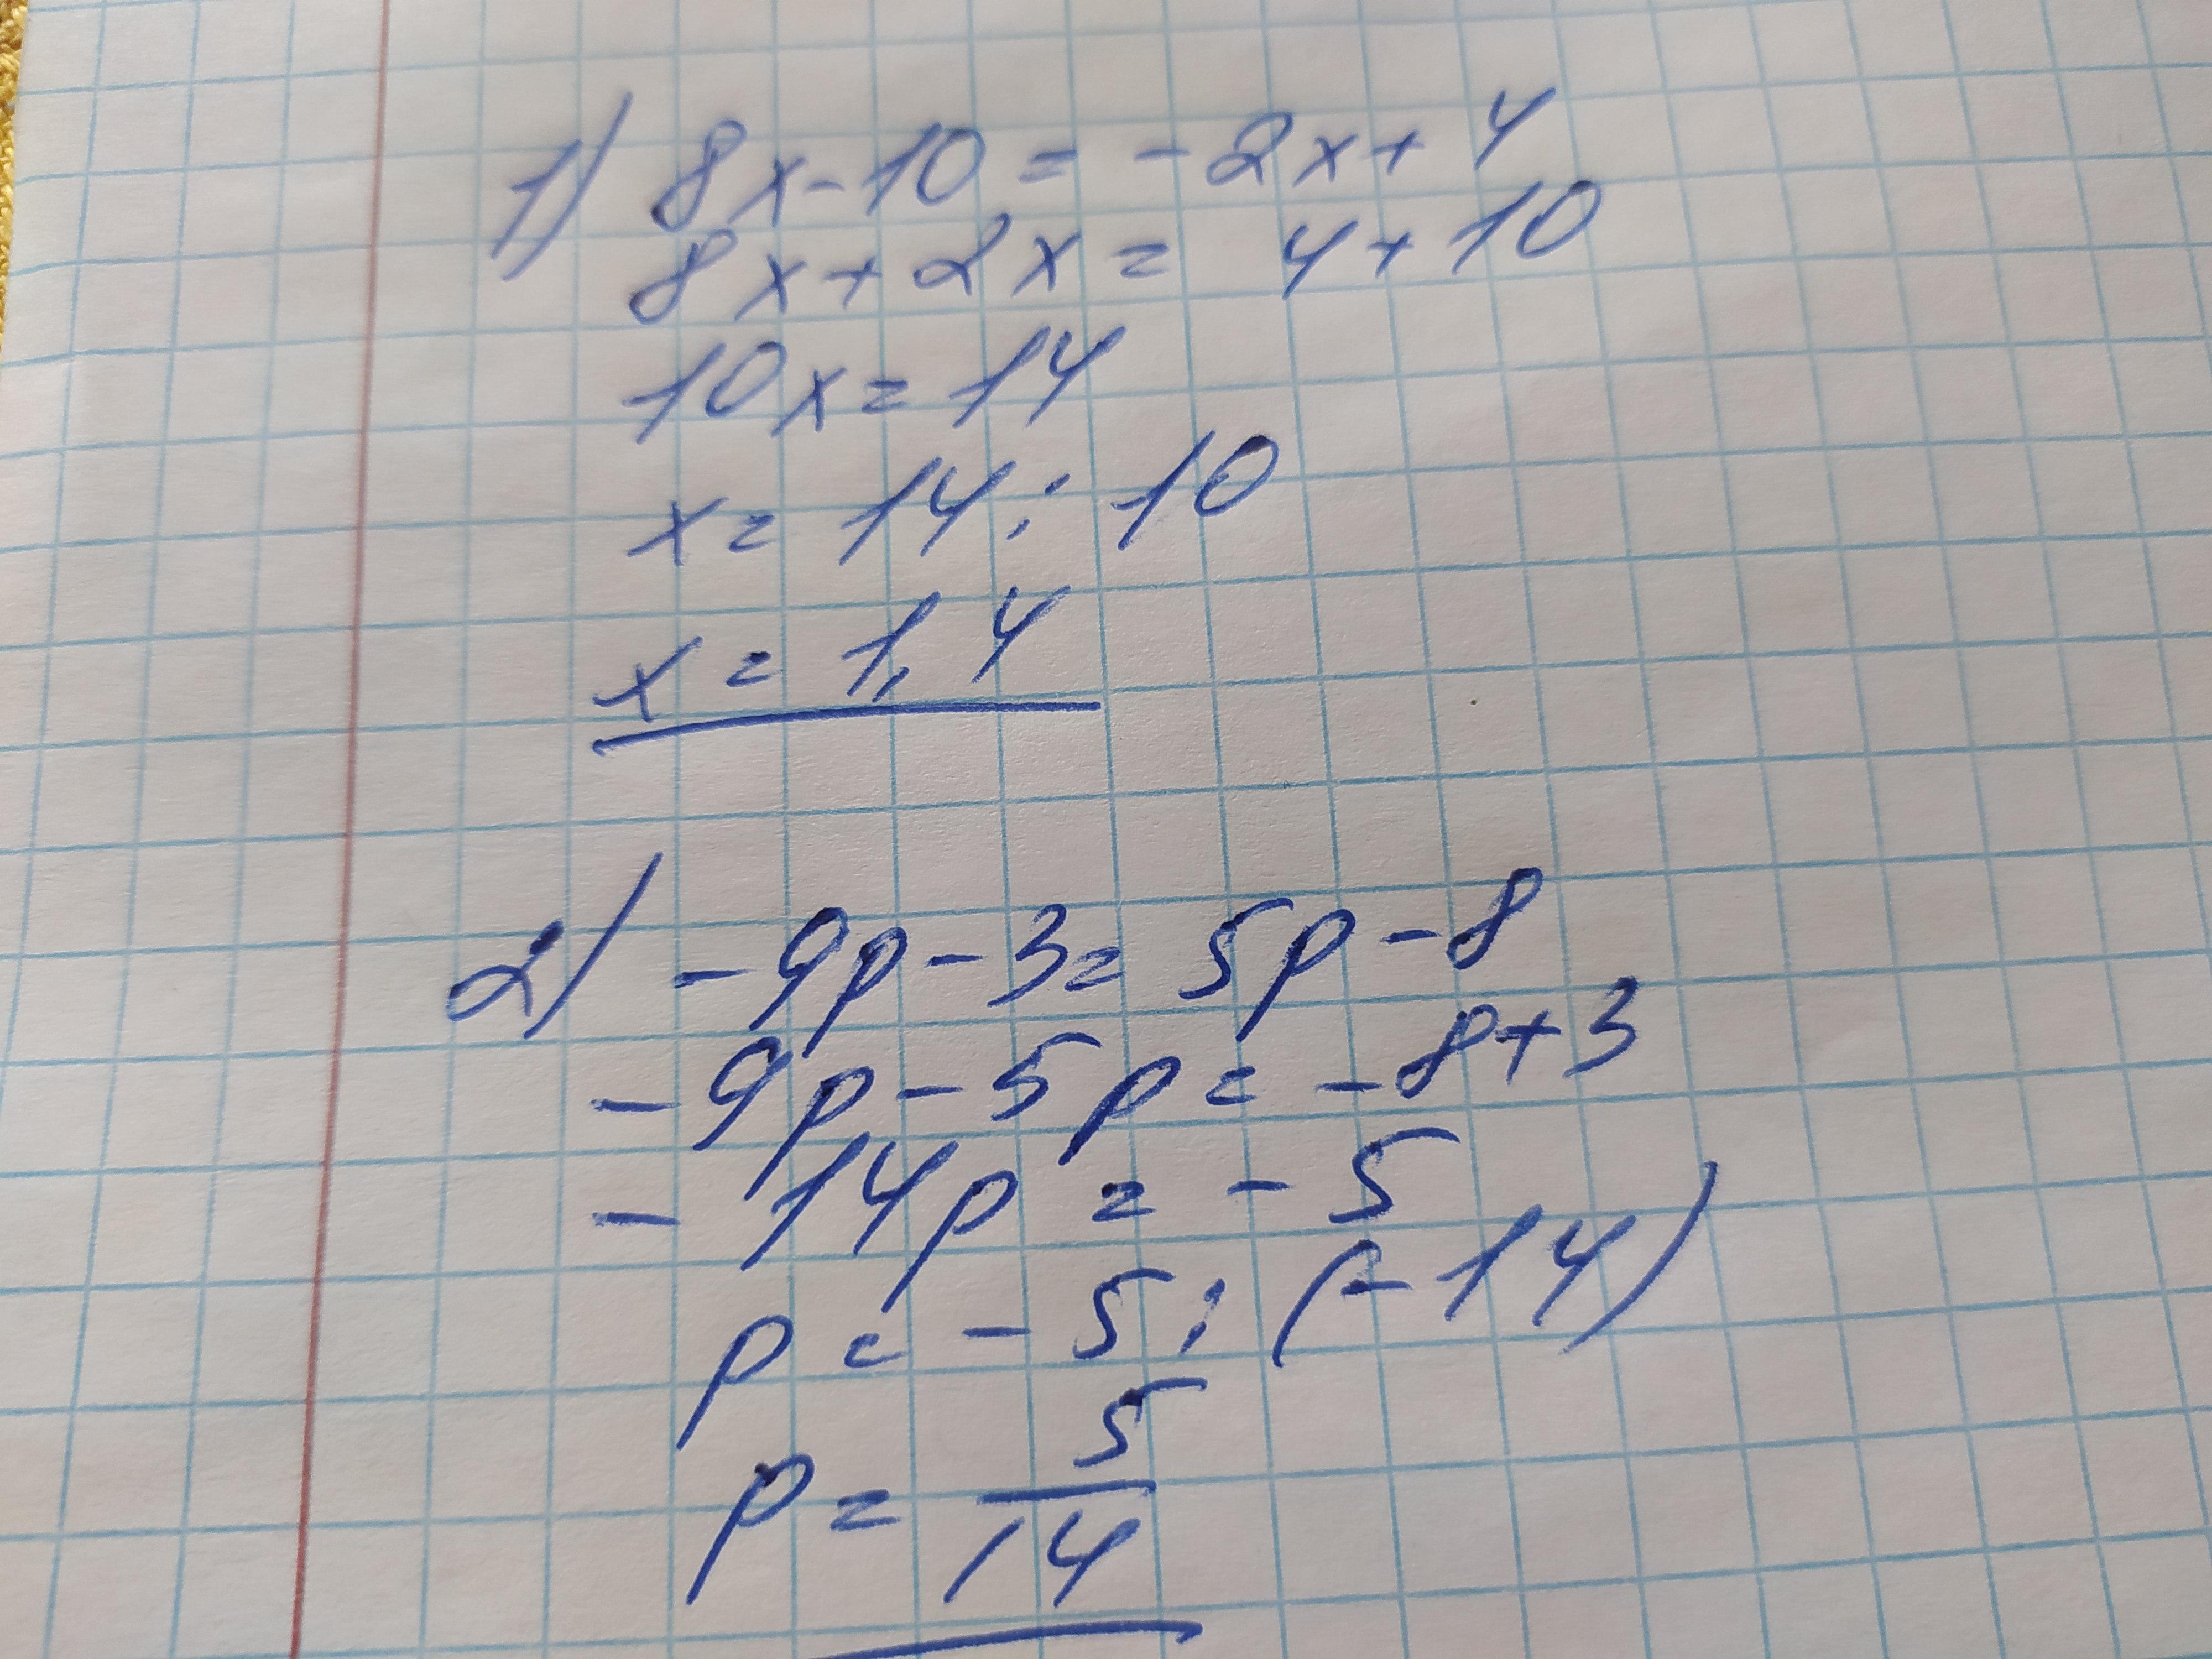 1) 8x-10 = -2x+4
8x+2x = 4+10
10x=14
x=14:10
x=1,4
2) -9p-3=5p-8
-9p-5p=-8+3
-14p=-5
p=-5:(-14)
p=5/14